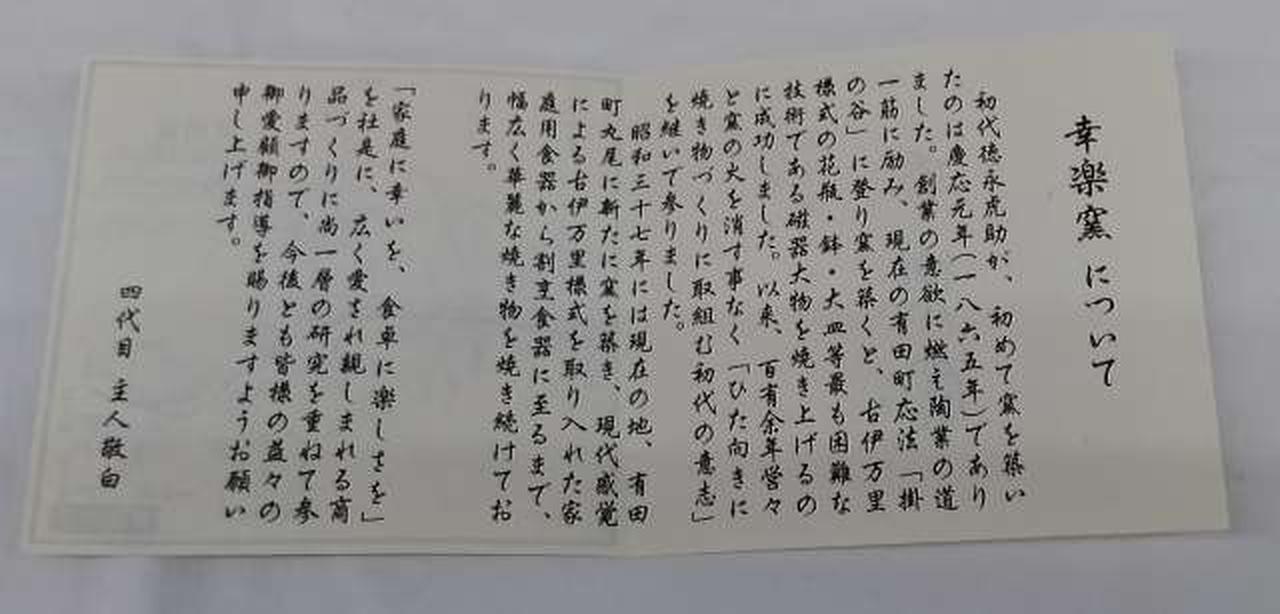 幸楽窯について
初代徳永虎助が、初めて窯を築い
たのは慶応元年(一八六五年)であり
ました。創業の意欲に燃え陶業の道
一筋に励み、現在の有田町応法「掛
の谷」に登り窯を築くと、古伊万里
様式の花瓶・鉢・大皿等最も困難な
技術である磁器大物を焼き上げるの
に成功しました。以来、百有余年営々
と窯の火を消す事なく「ひた向きに
焼き物づくりに取組む初代の意志」
を継いで参りました。
昭和三十七年には現在の地、有田
町丸尾に新たに窯を築き、現代感覚
による古伊万里様式を取り入れた家
庭用食器から割烹食器に至るまで、
幅広く華麗な焼き物を焼き続けてお
ります。
「家庭に幸いを、食卓に楽しさを」
を社是に、広く愛され親しまれる商
品づくりに尚一層の研究を重ねて参
りますので、今後とも皆様の益々の
御愛顧御指導を賜りますようお願い
申し上げます。
四代目 主人敬白